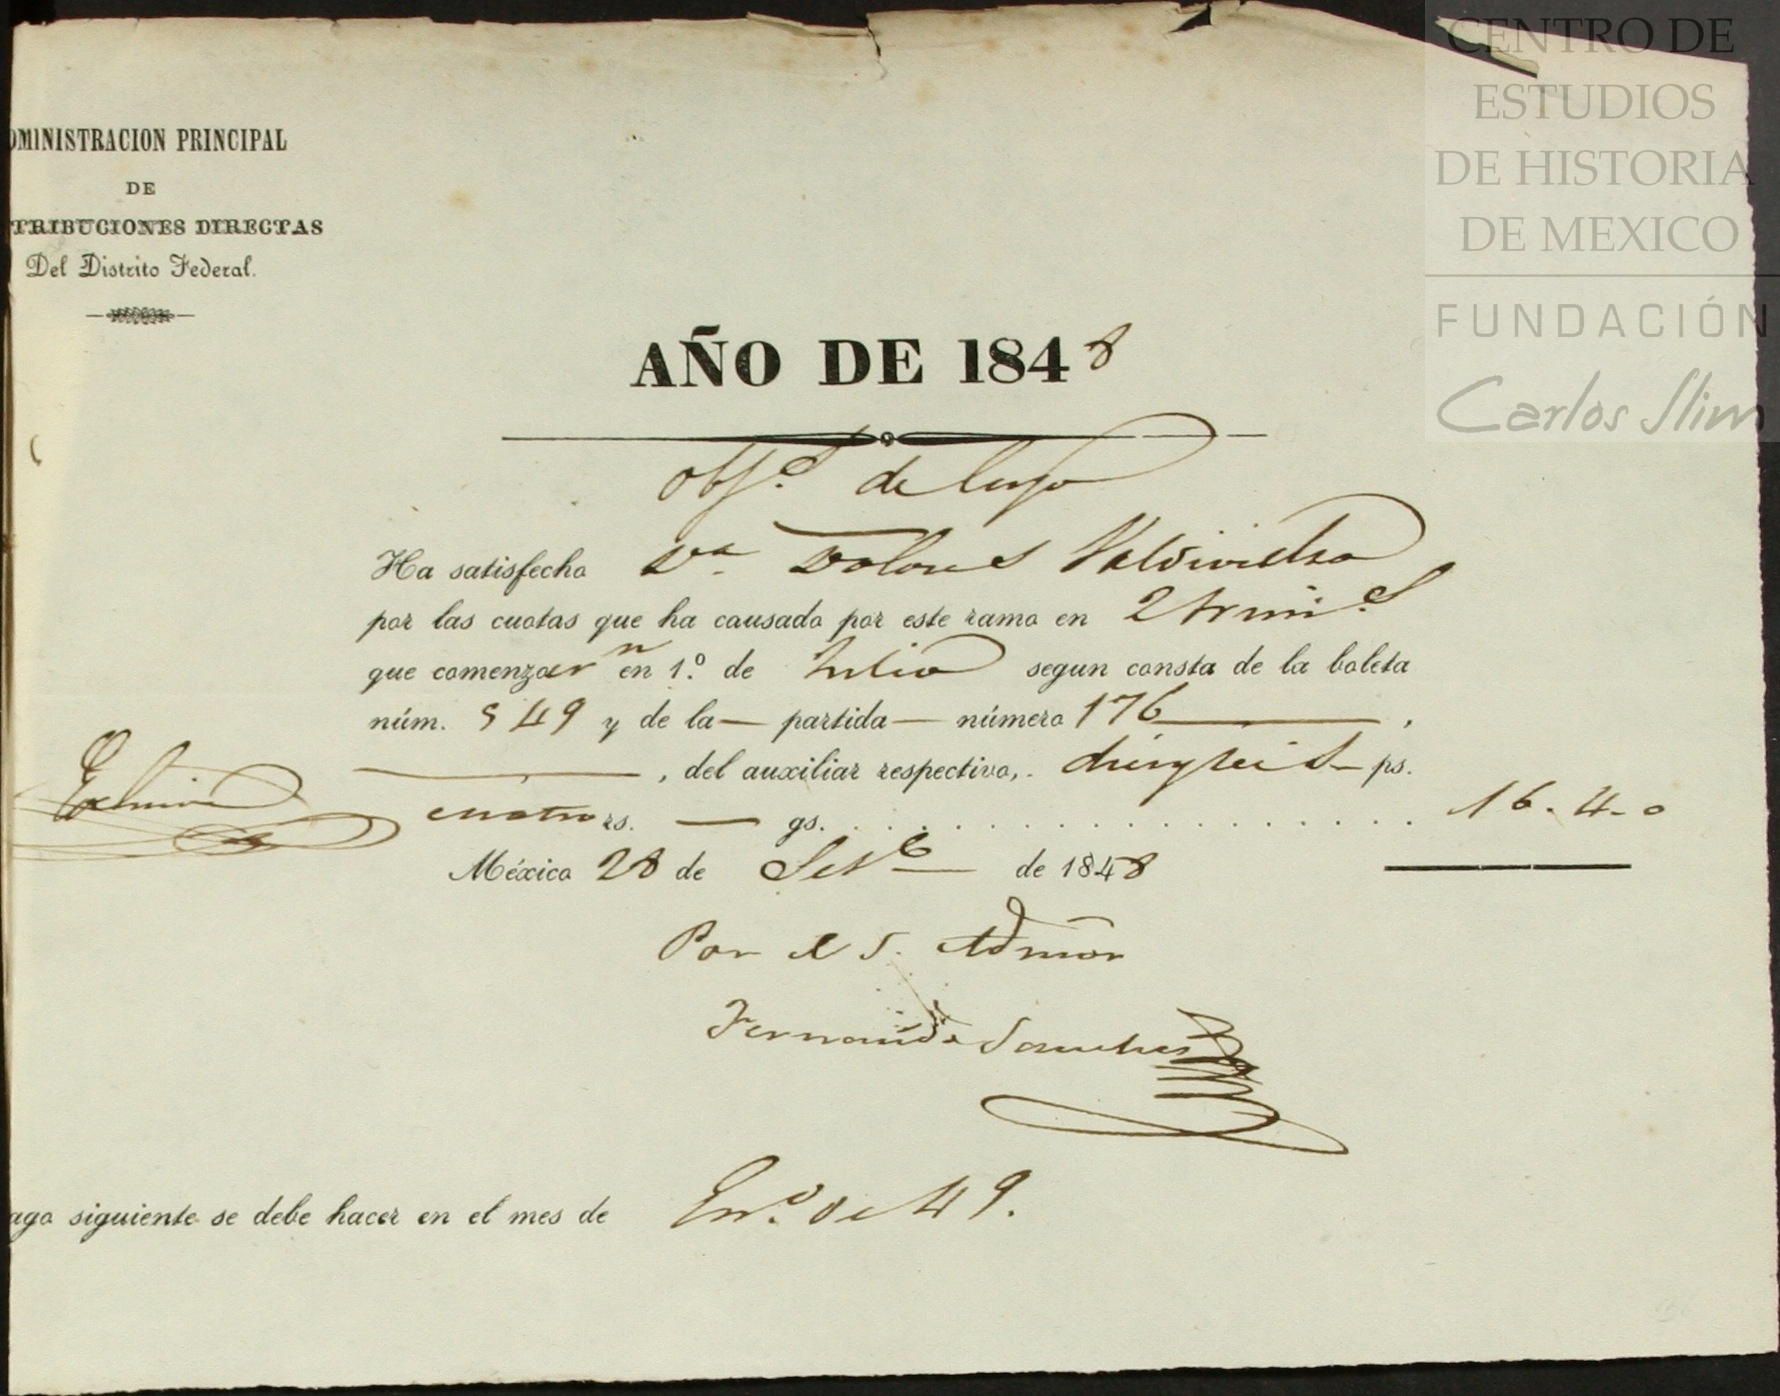 CENTRO DE
ESTUDIOS
DE HISTORIA
DE MEXICO
FUNDACIÓN
Carlos Slim
DMINISTRACION PRINCIPAL
DE
TRIBUCIONES DIRECTAS
Del Distrito Federal.
AÑO DE 1848
Objs. de lujo
Ha satisfecho Da. Dolores Valdivielso
por las cuotas que ha causado por este ramo en 2 trimes
que comenzarn en 1.º de Julio segun consta de la boleta
núm. 549 y de la — partida — número 176 ,
, del auxiliar respectivo, diezyseis ps.
cuatro rs. — gs. 16-4-0
México 28 de Setb de 1848
Por el S. Admor
Fernando Sanchez
ago siguiente se debe hacer en el mes de Eno. de 49.